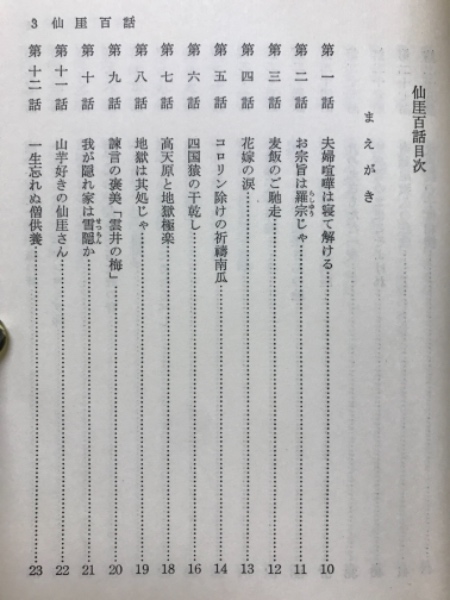 3 仙厓百話
仙厓百話目次
まえがき
第一話 夫婦喧嘩は寝て解ける……10
第二話 お宗旨は羅宗じゃ……11
らしゆう
第三話 麦飯のご馳走……12
第四話 花嫁の涙……13
第五話 コロリン除けの祈禱南瓜……14
第六話 四国猿の干乾し……16
第七話 高天原と地獄極楽……18
第八話 地獄は其処じゃ……19
第九話 諫言の褒美「雲井の梅」……20
第十話 我が隠れ家は雪隠か……21
せつちん
第十一話 山芋好きの仙厓さん……22
第十二話 一生忘れぬ僧供養……23